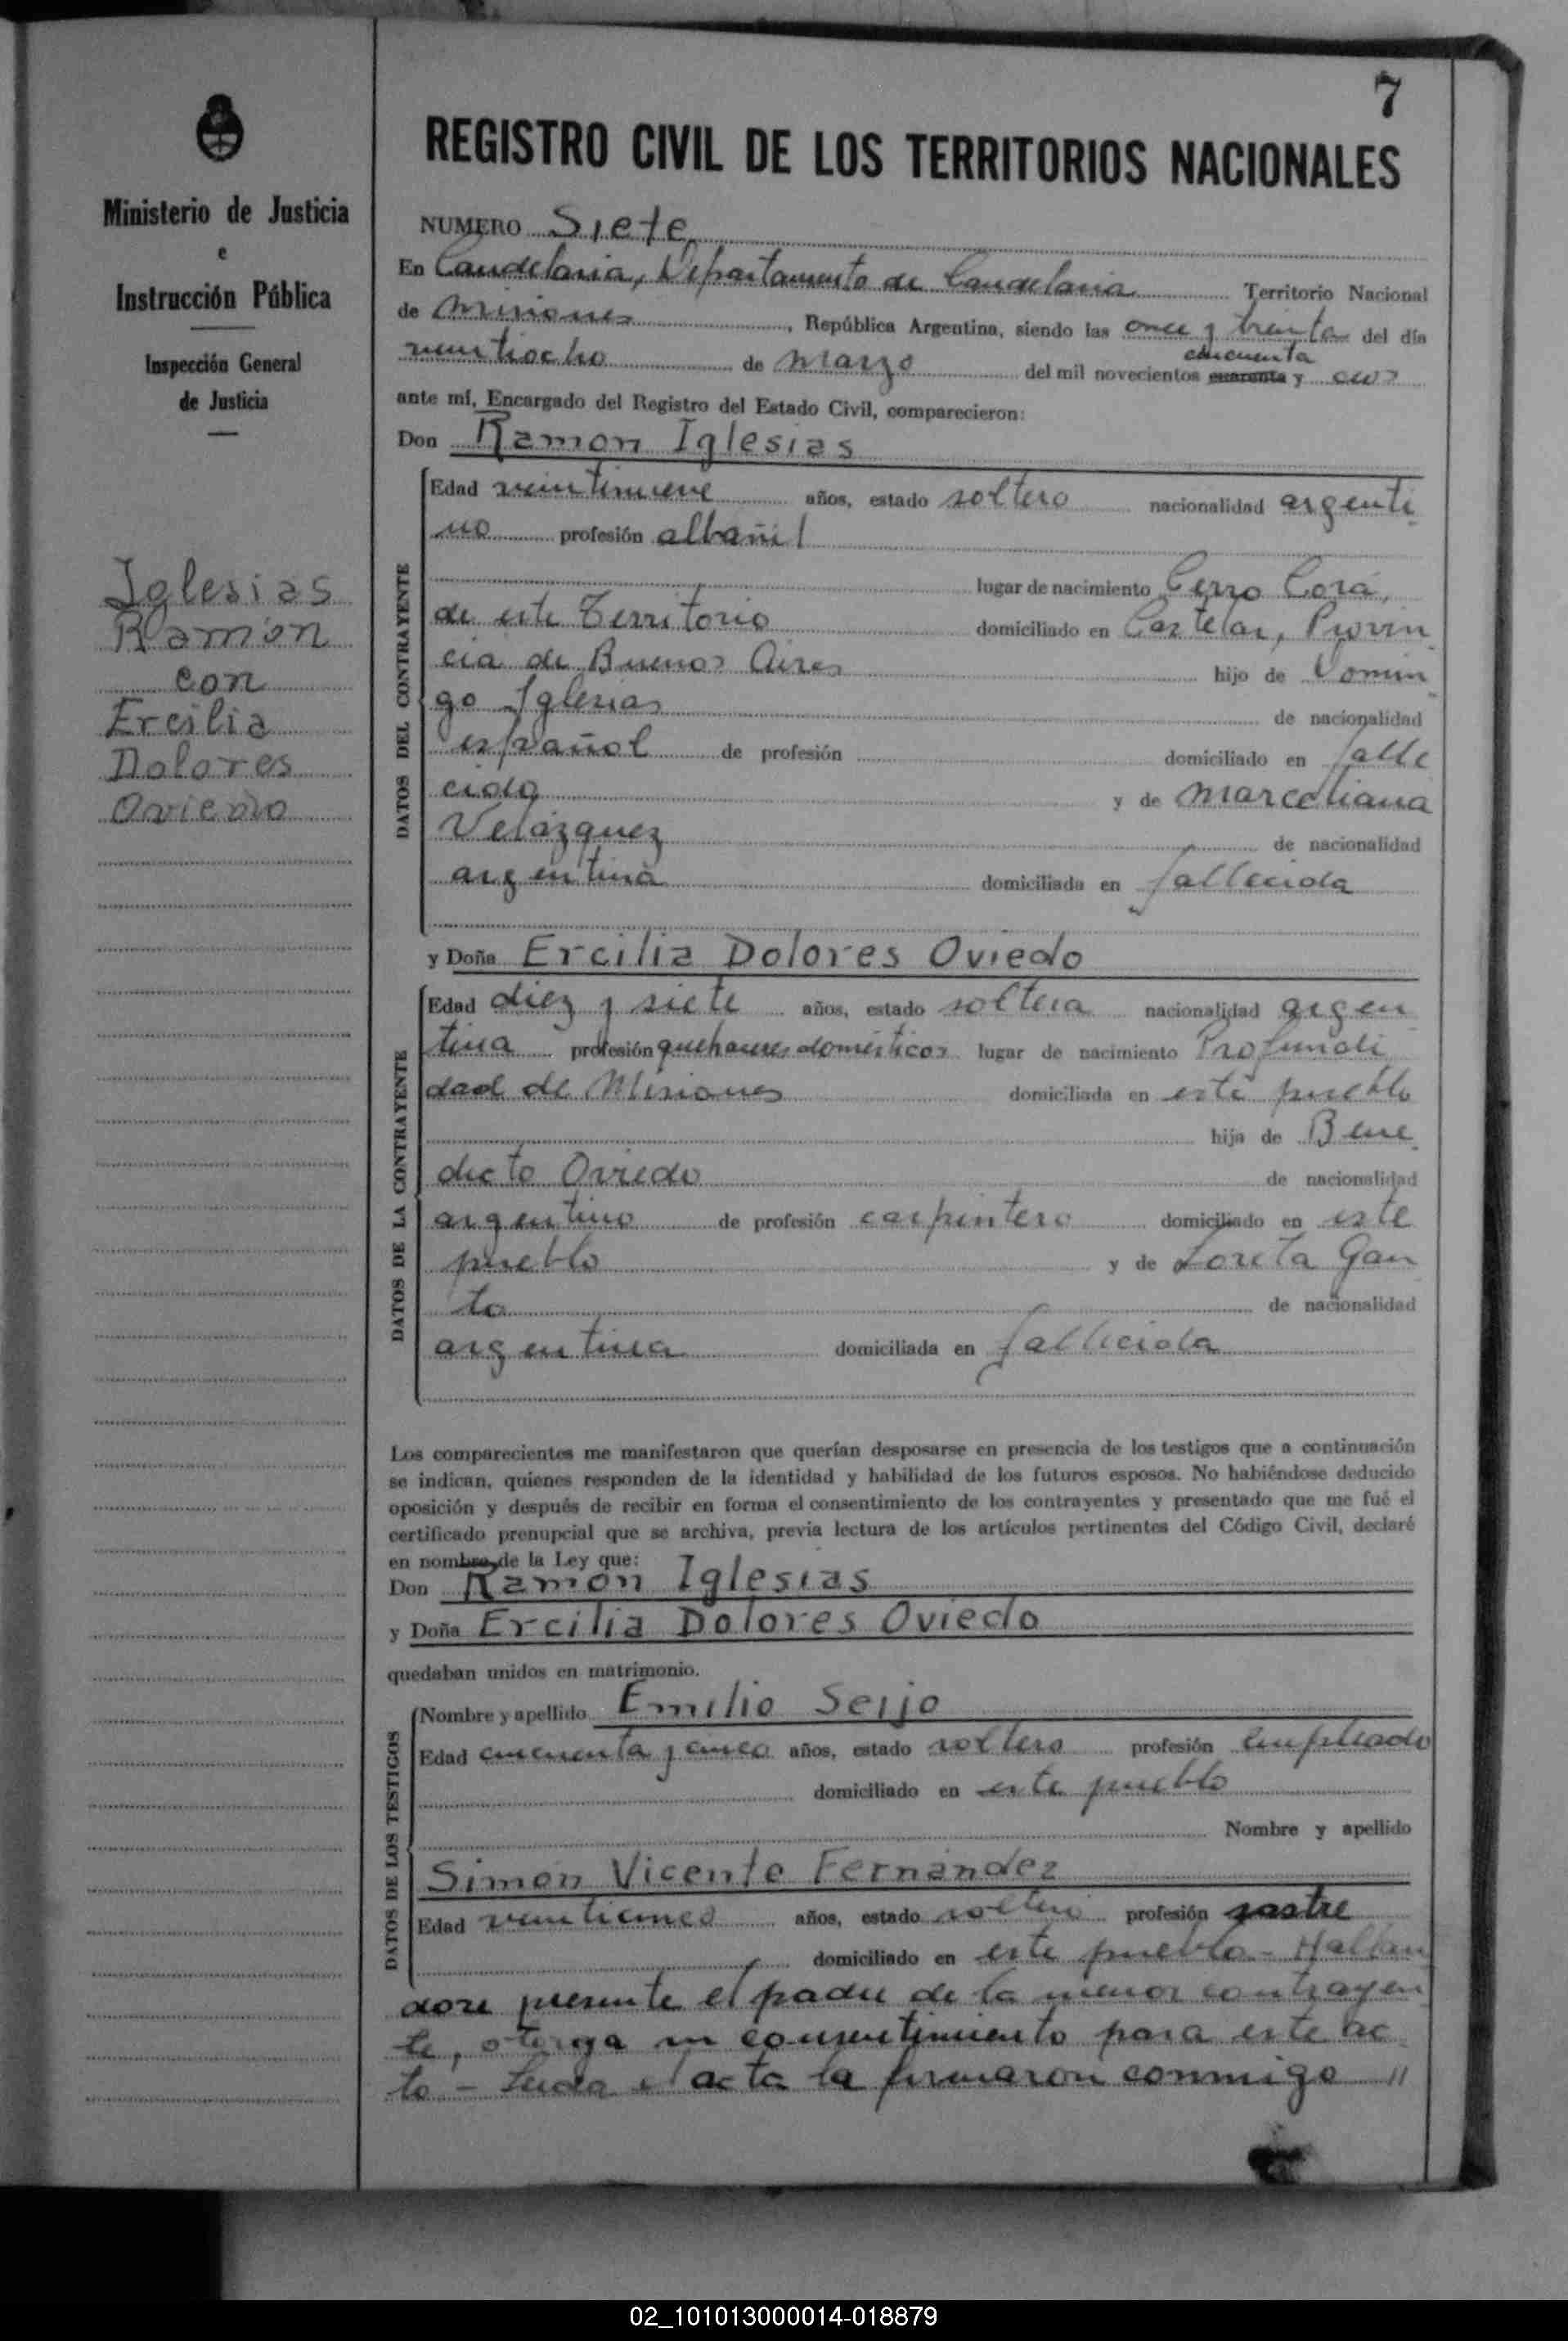 7
REGISTRO CIVIL DE LOS TERRITORIOS NACIONALES
Ministerio de Justicia
e
Instrucción Pública
Inspección General
de Justicia
Iglesias
Ramón
con
Ercilia
Dolores
Oviedo
NUMERO Siete
En Candelaria, Departamento de Candelaria Territorio Nacional
de Misiones, República Argentina, siendo las once y treinta del día
veintiocho de Marzo del mil novecientos cuarenta cincuenta y
ante mí, Encargado del Registro del Estado Civil, comparecieron:
Don Ramón Iglesias
DATOS DEL CONTRAYENTE
Edad veintinueve años, estado soltero nacionalidad argenti
no profesión albañil
lugar de nacimiento Cerro Corá,
de este Territorio domiciliado en Castelar, Provin
cia de Buenos Aires hijo de Domin
go Iglesias de nacionalidad
español de profesión domiciliado en falle
cido y de Marceliana
Velázquez de nacionalidad
argentina domiciliada en fallecida
y Doña Ercilia Dolores Oviedo
DATOS DE LA CONTRAYENTE
Edad diez y siete años, estado soltera nacionalidad argen
tina profesión quehaceres domésticos lugar de nacimiento Profundi
dad de Misiones domiciliada en este pueblo
hija de Bene
dicto Oviedo de nacionalidad
argentino de profesión carpintero domiciliado en este
pueblo y de Loreta Gau
to de nacionalidad
argentina domiciliada en fallecida
Los comparecientes me manifestaron que querían desposarse en presencia de los testigos que a continuación
se indican, quienes responden de la identidad y habilidad de los futuros esposos. No habiéndose deducido
oposición y después de recibir en forma el consentimiento de los contrayentes y presentado que me fué el
certificado prenupcial que se archiva, previa lectura de los artículos pertinentes del Código Civil, declaré
en nombre de la Ley que:
Don Ramón Iglesias
y Doña Ercilia Dolores Oviedo
quedaban unidos en matrimonio.
DATOS DE LOS TESTIGOS
Nombre y apellido Emilio Seijo
Edad cincuenta y cinco años, estado soltero profesión empleado
domiciliado en este pueblo
Nombre y apellido
Simón Vicente Fernández
Edad veinticinco años, estado soltero profesión sastre
domiciliado en este pueblo - Hallan
dose presente el padre de la menor contrayen
te, otorga su consentimiento para este ac
to - Leída el acta la firmaron conmigo //
02_101013000014-018879